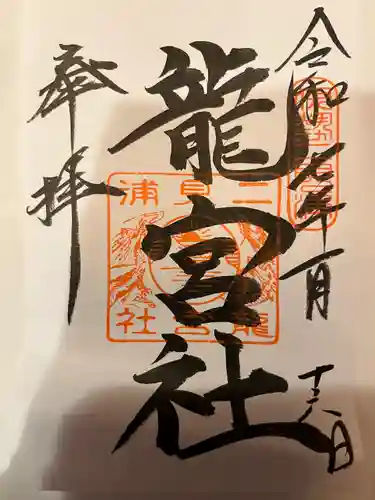 令和七年一月十六日
龍宮社
奉拝
二見浦
龍宮社